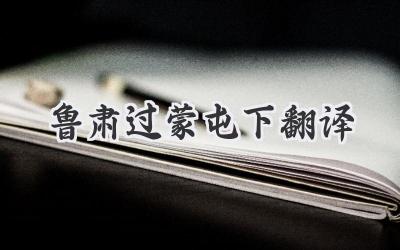 鲁肃过蒙屯下翻译